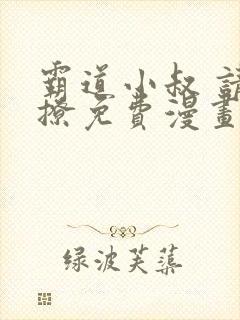 霸道小叔 請
撩免費漫畫
绿波芙蕖